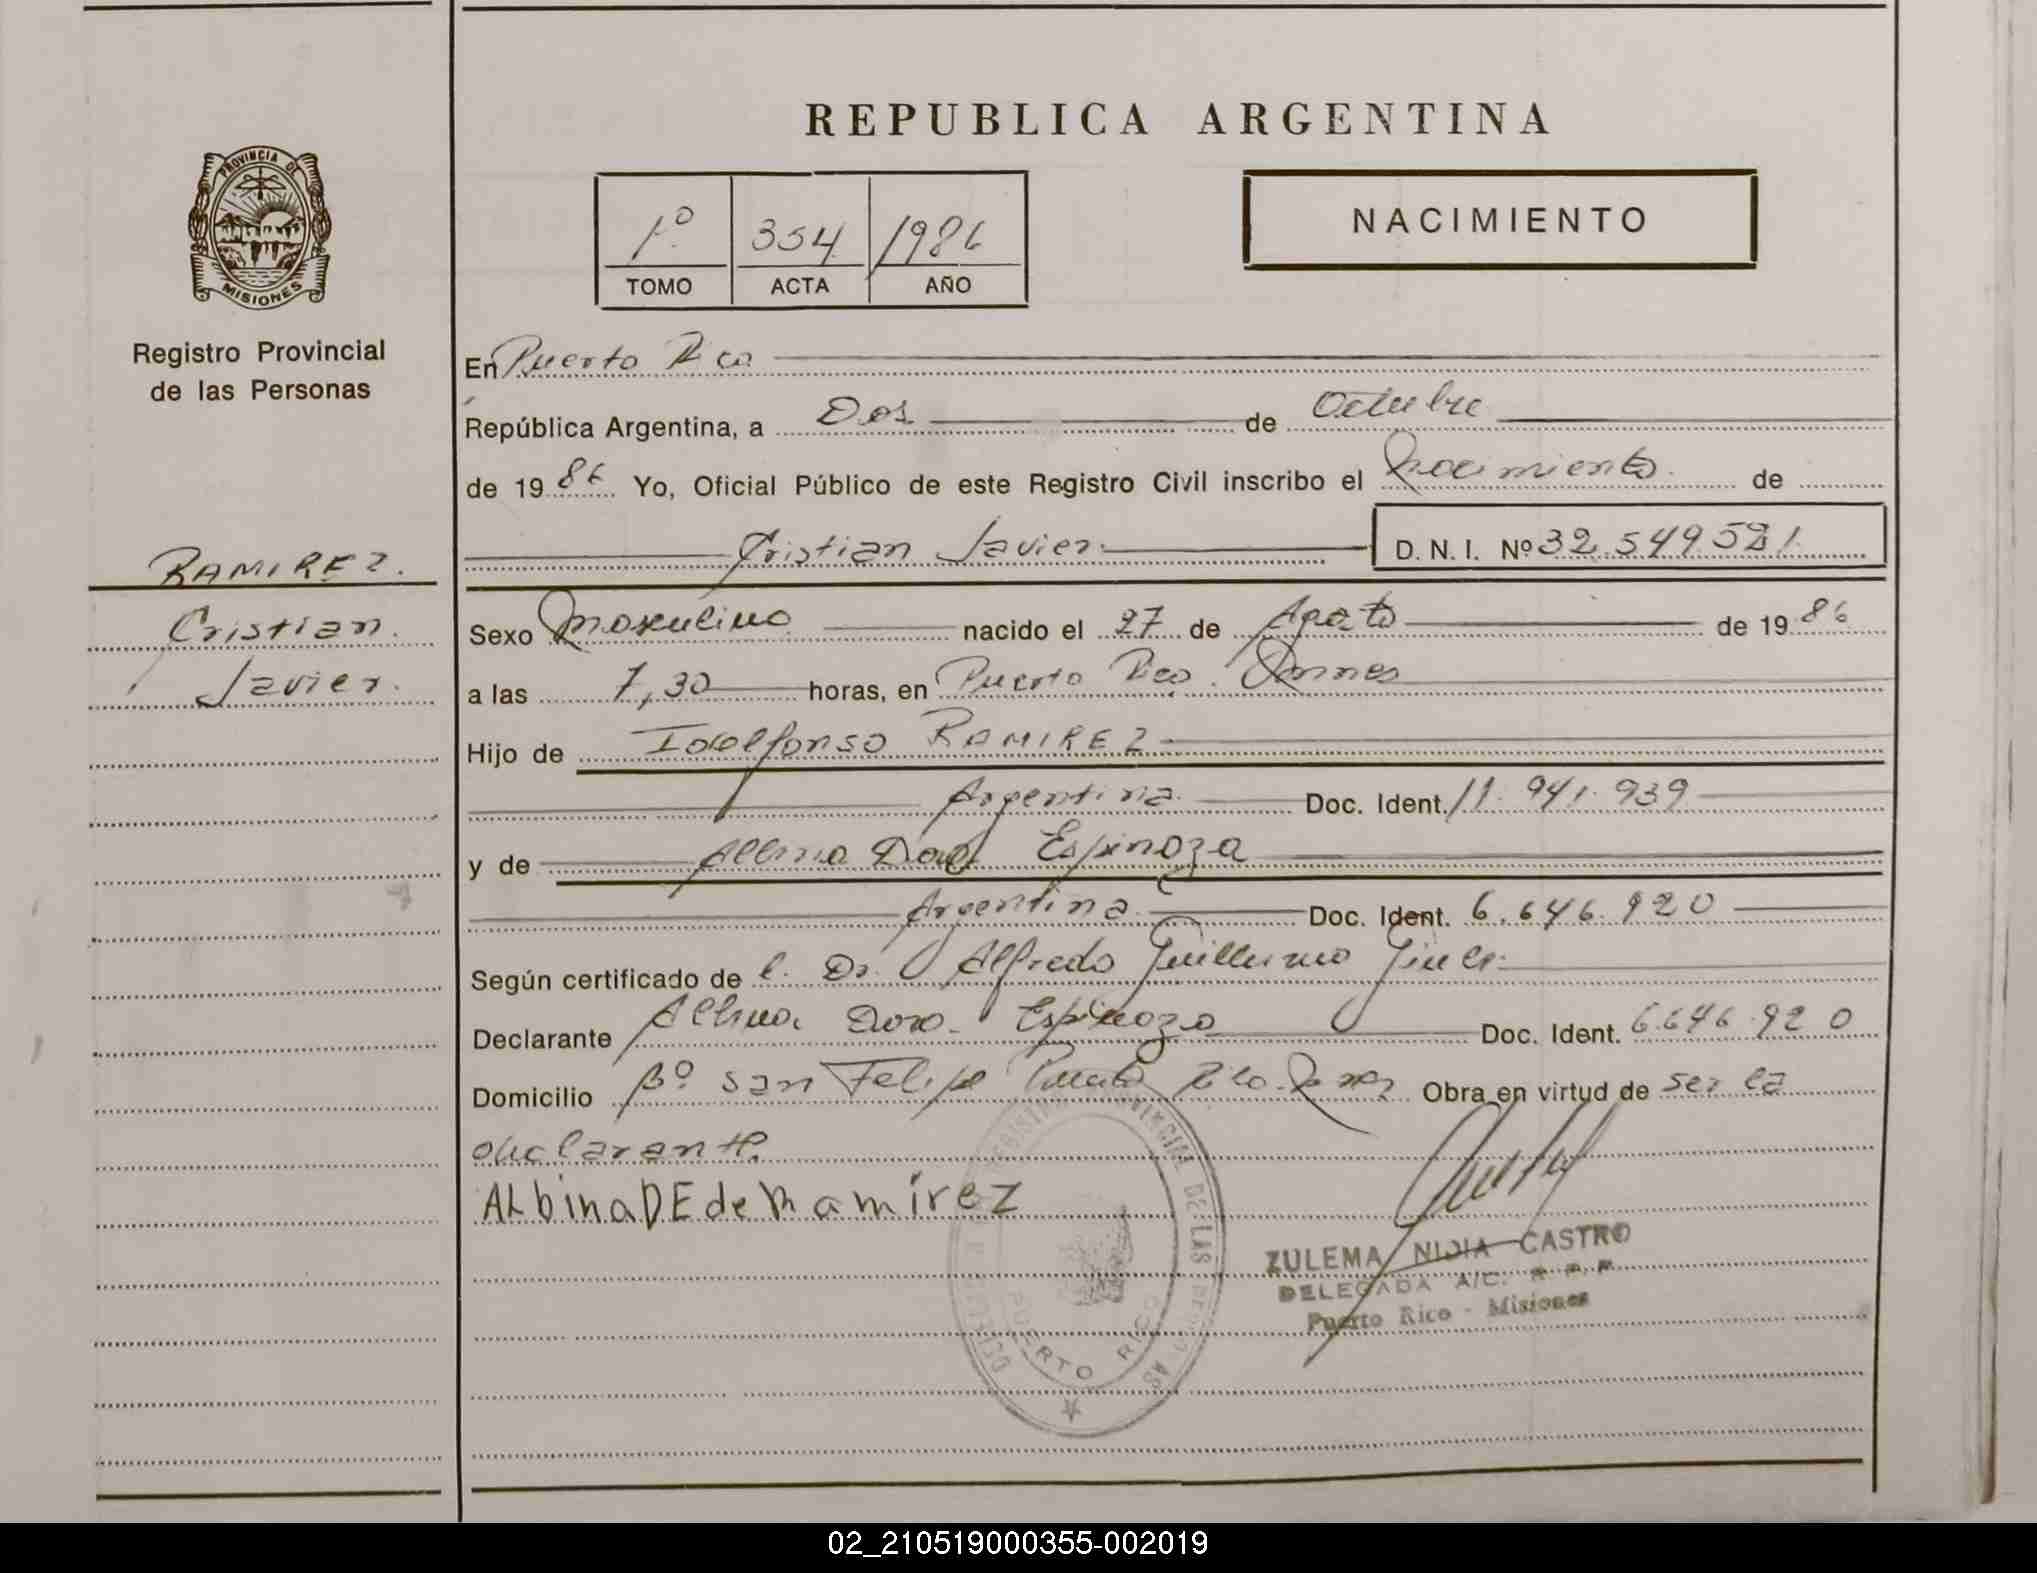 REPUBLICA ARGENTINA
PROVINCIA DE
MISIONES
Registro Provincial
de las Personas
RAMIREZ.
Cristian
Javier.
1º 354 1986
TOMO ACTA AÑO
NACIMIENTO
En Puerto Rico
República Argentina, a Dos de Octubre
de 1986 Yo, Oficial Público de este Registro Civil inscribo el Nacimiento de
Cristian Javier. D. N. I. Nº 32.549.521
Sexo Masculino nacido el 27 de Agosto de 1986
a las 7,30 horas, en Puerto Rico.
Hijo de Idelfonso RAMIREZ
Argentina. Doc. Ident. 11.941.939
y de Albina Dora Espinoza
Argentina Doc. Ident. 6.646.920
Según certificado de l. Dr. Alfredo Guillermo
Declarante Albina Dora Espinoza Doc. Ident. 6.646.920
Domicilio Bº San Felipe Puerto Rico Obra en virtud de ser la
declarante.
ALbinaDE de Ramirez
PROVINCIAL DE LAS
PUERTO RICO
ZULEMA NIDIA CASTRO
DELEGADA A/C. R.P.P.
Puerto Rico - Misiones
02_210519000355-002019